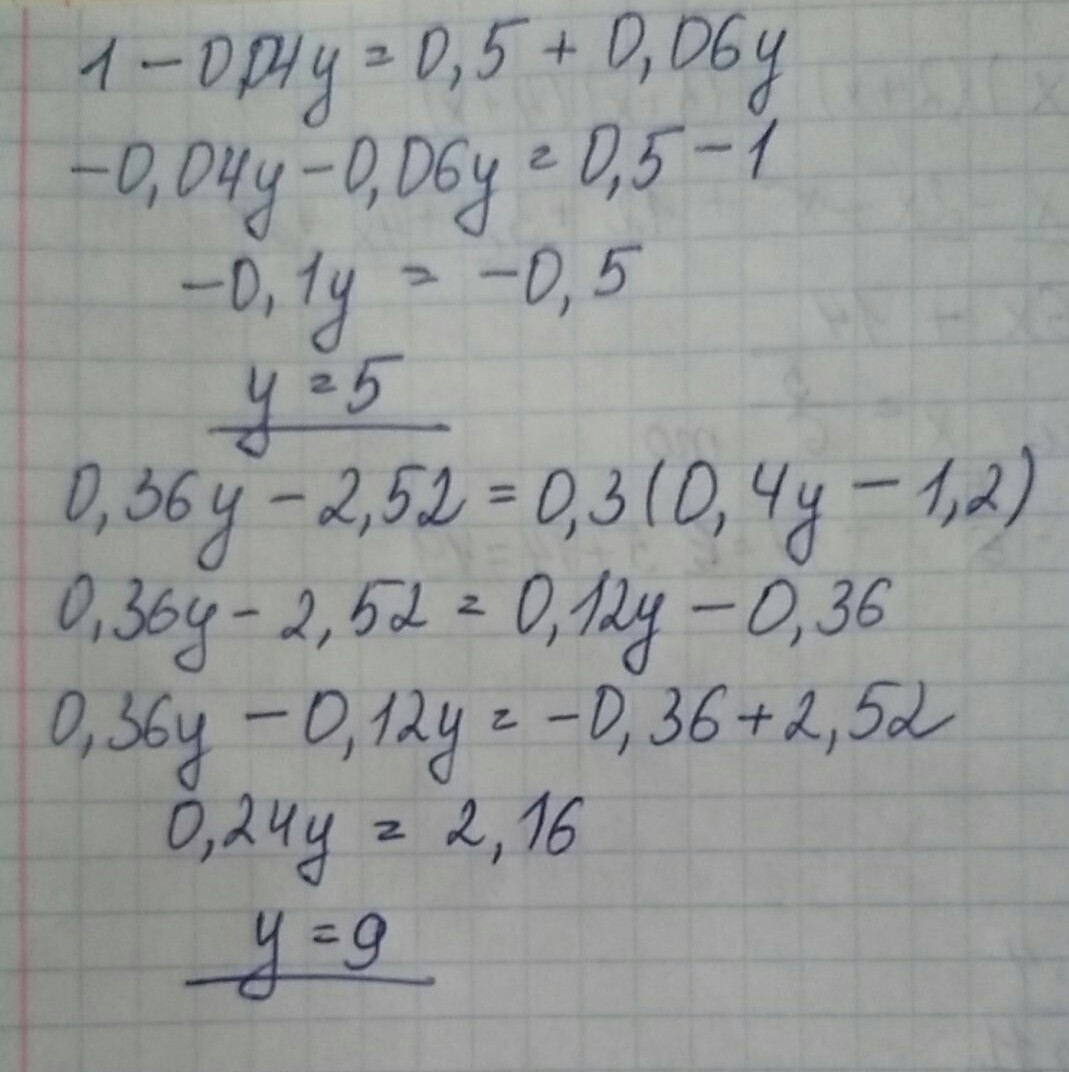 1 - 0,04y = 0,5 + 0,06y
-0,04y - 0,06y = 0,5 - 1
-0,1y = -0,5
y = 5
0,36y - 2,52 = 0,3(0,4y - 1,2)
0,36y - 2,52 = 0,12y - 0,36
0,36y - 0,12y = -0,36 + 2,52
0,24y = 2,16
y = 9